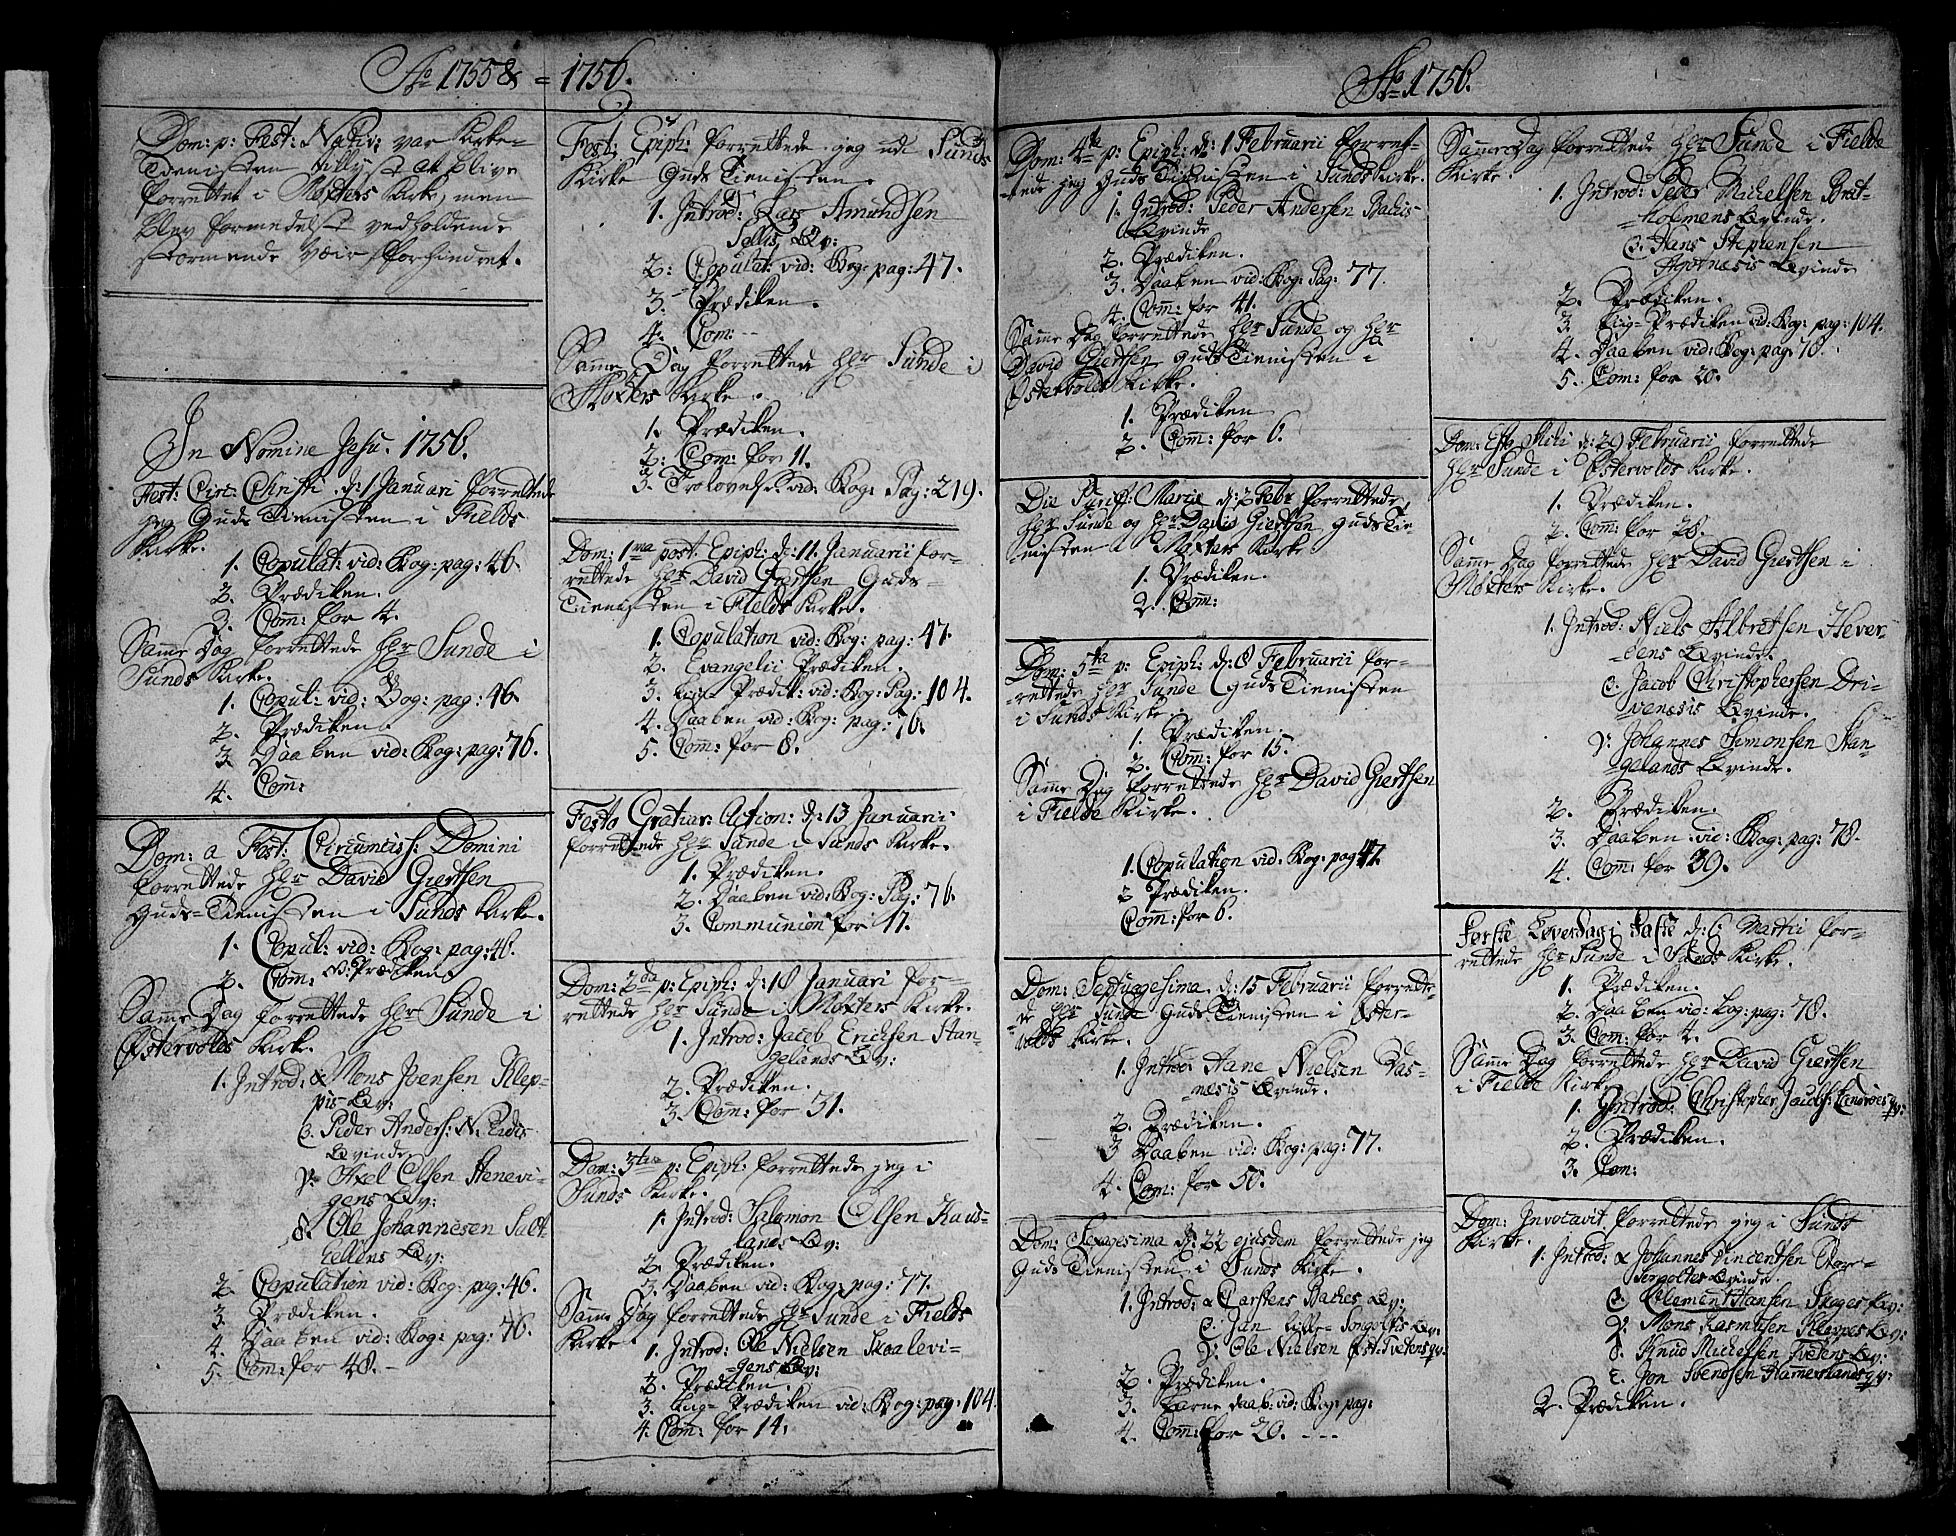 Ao 1755 & = 1756.
Dom: p: Fest: Nativ: var Kirke-
Tienisten tillyst at blive
forrettet i Møxters Kirke, men
blev formedelst vedholdende
stormende Veir forhindret.
In Nomine Jesu. 1756.
Fest: Circ: Christi. d: 1 Januari forrettede
jeg Guds Tienisten i Fields
Kirke.
1. Copulat: vid: Bog: pag: 46.
2. Prædiken.
3. Com: for 4.
Samme Dag forrettede Hr Sunde i
Sunds Kirke.
1. Copul: vid: Bog: pag: 46.
2. Prædiken.
3. Daaben vid: Bog: pag: 76.
4. Com:
Dom: a Fest: Circumcis: Domini
forrettede Hr David Giertsen
Guds-Tienisten i Sunds Kirke.
1. Copul: vid: Bog: pag: 48.
2. Com: Prædiken
Samme Dag forrettede Hr Sunde i
Østervolds Kirke.
1. Introd: α Mons Ivensen Klep-
pis Qv:
β. Peder Anders: N:
Qvinde
γ. Axel Olsen Stenevi-
gens Qv:
δ. Ole Johannesen Salt-
hellens Qv:
2. Copulation vid: Bog: pag: 46.
3. Prædiken.
4. Daaben vid: Bog: pag: 76.
5. Com: for 48. -
Fest: Epiph: forrettede jeg udi Sunds
Kirke Guds Tienisten.
1. Introd: Lars Amundsen
Qv:
2. Copulat: vid: Bog: pag: 47.
3. Prædiken.
4. Com: --
Samme Dag forrettede Hr Sunde i
Møxters Kirke.
1. Prædiken.
2. Com: for 11.
3. Trolovels: vid: Bog: Pag: 219.
Dom: 1ma post: Epiph: d: 11. Januarii for-
rettede Hr David Giertsen Guds-
Tienisten i Fields Kirke.
1. Copulation vid: Bog: pag: 47.
2. Evangelii Prædiken.
3. Liig Prædik: vid: Bog: Pag: 104.
4. Daaben vid: Bog: pag: 76.
5. Com: for 8.
Festo Gratiar: Action: d: 13 Januarii
forrettede Hr Sunde i Sunds Kirke.
1. Prædiken.
2. Daaben vid: Bog: Pag: 76.
3. Communion for 17.
Dom: 2da p: Epiph: d: 18 Januari for-
rettede Hr Sunde i Møxters Kirke.
1. Introd: Jacob Erichsen Stan-
gelands Qv:
2. Prædiken.
3. Com: for 31.
Dom: 3tia p: Epiph: forrettede jeg i
Sunds Kirke.
1. Introd: Salomon Olsen Haus-
lands Qv:
2. Prædiken.
3. Daaben vid: Bog: pag: 77.
Samme Dag forrettede Hr Sunde i Fields
Kirke
1. Introd: Ole Nielsen Skaalevi-
gens Qv:
2. Prædiken.
3. Liig-Prædiken vid: Bog: pag: 104.
4. Com: for 14.
Ao 1756.
Dom: 4ta p: Epiph: d: 1 Februarii forret-
tede jeg Guds Tienisten i Sunds Kirke.
1. Introd: Peder Andersen
Qvinde
2. Prædiken.
3. Daaben vid: Bog: Pag: 77.
4. Com: for 41.
Samme Dag forrettede Hr Sunde og Hr
David Giertsen Guds Tienisten i
Østervolds Kirke.
1. Prædiken
2. Com: for 6.
Die Purif: Mariæ d: 2 Febr forrettede
Hr Sunde og Hr David Giertsen Guds Tie-
nisten i Møxters Kirke
1. Prædiken.
2. Com:
Dom: 5ta p: Epiph: d: 8 Februarii for-
rettede Hr Sunde Guds Tienisten
i Sunds Kirke.
1. Prædiken.
2. Com: for 15.
Samme Dag forrettede Hr David Giertsen
i Fields Kirke.
1. Copulation vid: Bog: pag 47.
2 Prædiken.
Com: for 6.
Dom: Septuagesima d: 15 Februarii forrette-
de Hr Sunde Guds Tienisten i Øster-
volds Kirke.
1. Introd: Hane Nielsen
Qvinde.
2. Prædiken.
3 Daaben vid: Bog: pag: 77.
4. Com: for 50.
Dom: Sexagesima d: 22 ejusdem forrettede jeg
Guds Tienisten i Sunds Kirke.
1. Introd: α Carstens Qv:
β. Jan Lille- Qv:
γ: Ole Nielsen Øst: Tvetens qv:
2. Prædiken.
3. Barne daab: vid: Bog: pag:
4. Com: for 20. ---
Samme Dag forrettede Hr Sunde i Fields
Kirke.
1. Introd: Peder Michelsen Brat-
holmens Qvinde.
β. Hans Stephensen
Qvinde
2. Prædiken.
3 Liig-Prædiken vid: Bog: pag: 104.
4. Daaben vid: Bog: pag: 78.
5. Com: for 20.
Dom: Esto Mihi d: 29 Februarii forrettede
Hr Sunde i Østervolds Kirke.
1. Prædiken.
2. Com: for 28.
Samme Dag forrettede Hr David Giertsen i
Møxters Kirke.
1. Introd: Niels Albretsen Hever-
Qvinde.
β. Jacob Christophersen Dri-
venæsis Qvinde.
γ: Johannes Simonsen Stan-
gelands Qvinde.
2. Prædiken.
3. Daaben vid: Bog: pag: 78.
4. Com: for 39.
Første Løverdag i Faste d: 6 Martii for-
rettede Hr Sunde i Sunds Kirke.
1. Prædiken.
2. Daaben vid: Bog: pag: 78.
3. Com: for 4.
Samme Dag forrettede Hr David Giertsen
i Fields Kirke
1. Introd: Christopher Jacobs: Landroes qv:
2. Prædiken.
3. Com:
Dom: Invocavit forrettede jeg i Sunds
Kirke.
1. Introd: α Johannes Vincentsen Store-
Qvinde
β. Clement Hansen Skoges Qv:
γ. Mons Rasmusen Kleppes Qv:
δ. Knud Michelsen Tvetens Qv:
ε. Jon Svendsen Hammerslands qv:
2. Prædiken.